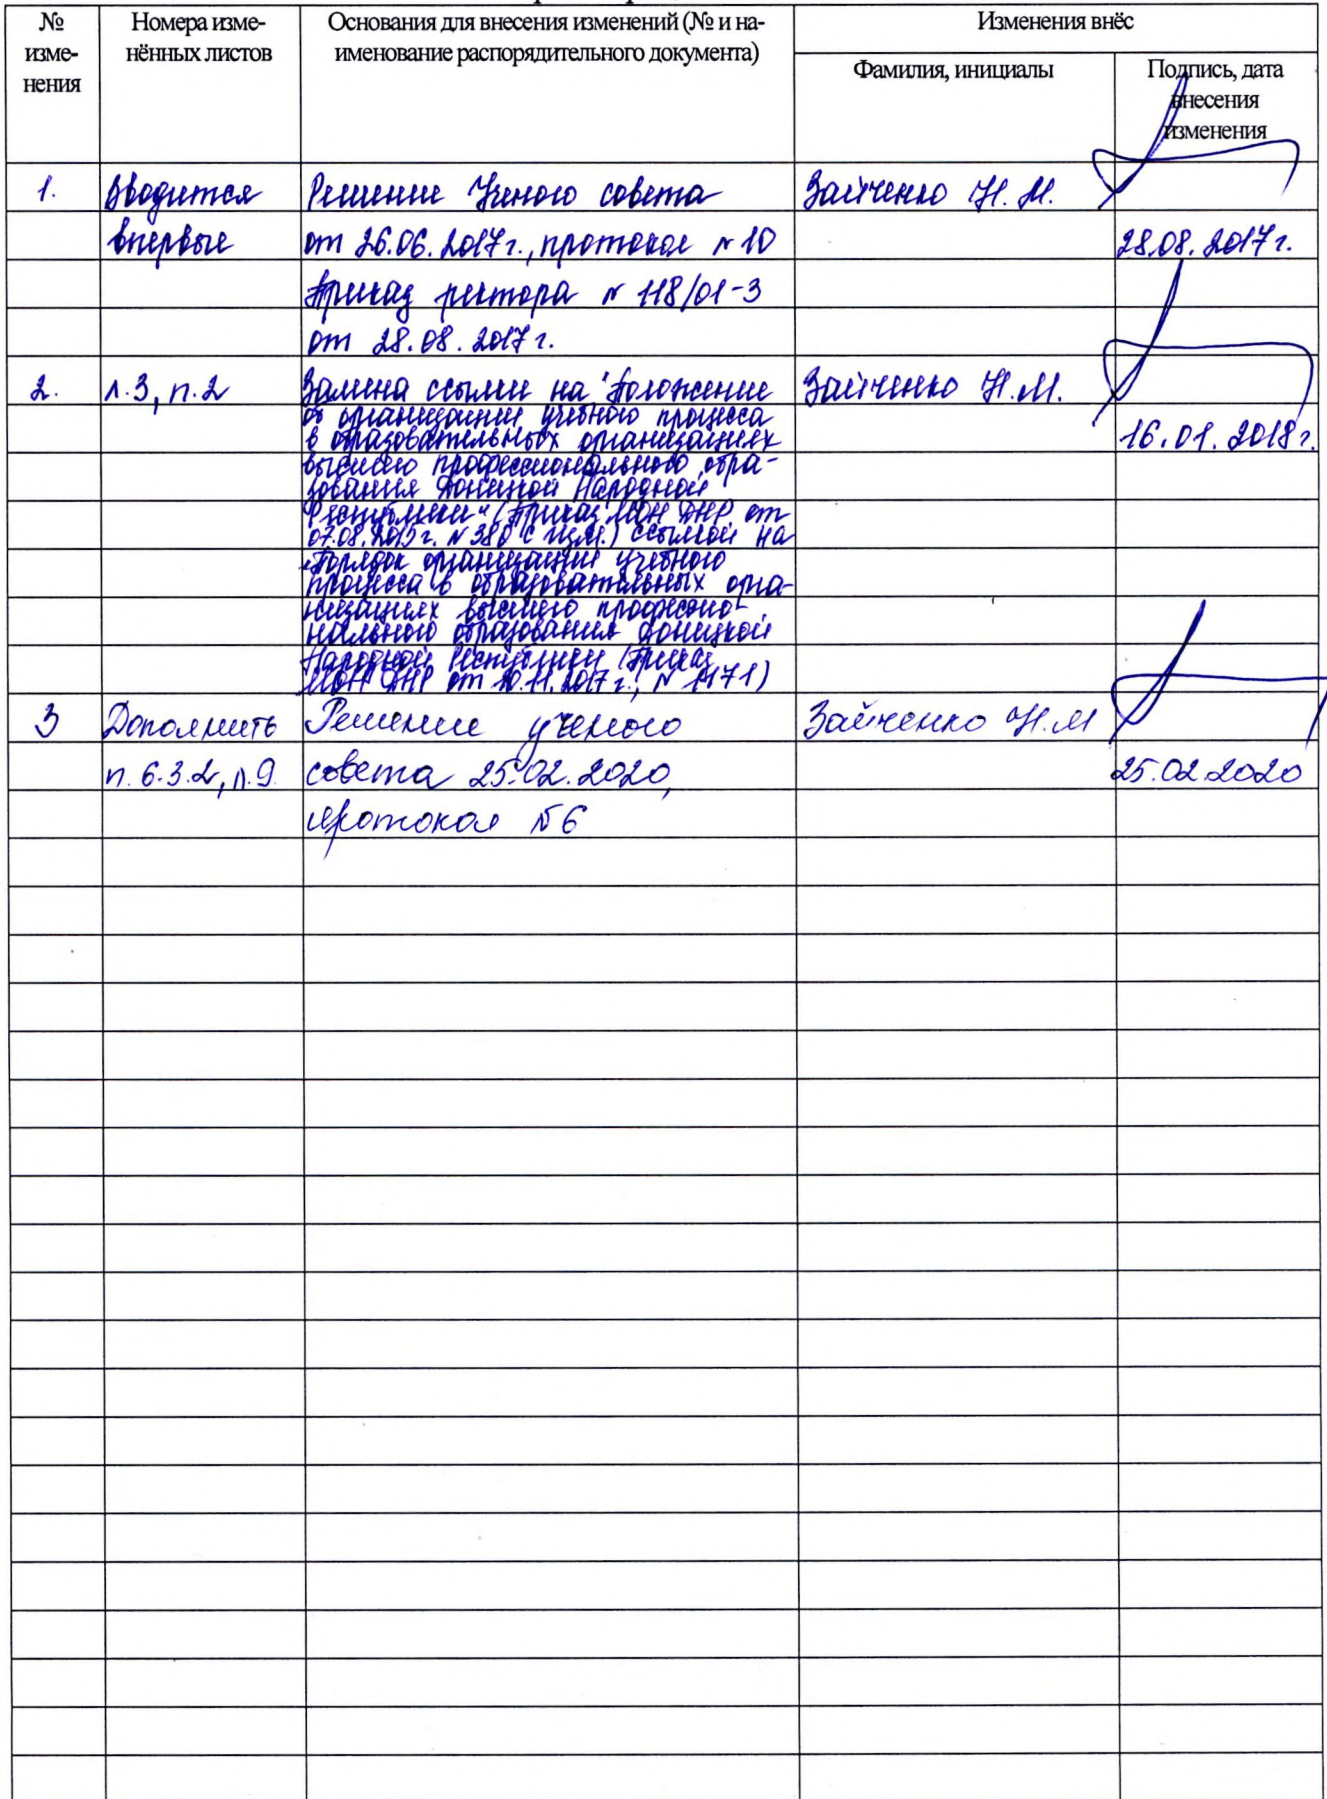 № изме-нения
Номера изме-нённых листов
Основания для внесения изменений (№ и на-именование распорядительного документа)
Изменения внёс
Фамилия, инициалы
Подпись, дата внесения изменения
1.
Вводится
впервые
Решение Ученого совета
от 26.06.2017г., протокол №10
Приказ ректора № 118/01-3
от 28.08.2017г.
Зайченко Н.М.
28.08.2017г.
2.
л.3, п.2
Замена ссылки на "Положение
об организации учебного процесса
в образовательных организациях
высшего профессионального обра-
зования Донецкой Народной
Республики" (Приказ МОН ДНР от
07.08.2015г. №380 с изм.) ссылкой на
"Порядок организации учебного
процесса в образовательных орга-
низациях высшего професио-
нального образования Донецкой
Народной Республики (Приказ
МОН ДНР от 10.11.2017г., № 1171)
Зайченко Н.М.
16.01.2018г.
3
Дополнить
п. 6.3.2, п.9.
Решение ученого
совета 25.02.2020,
протокол №6
Зайченко Н.М
25.02.2020